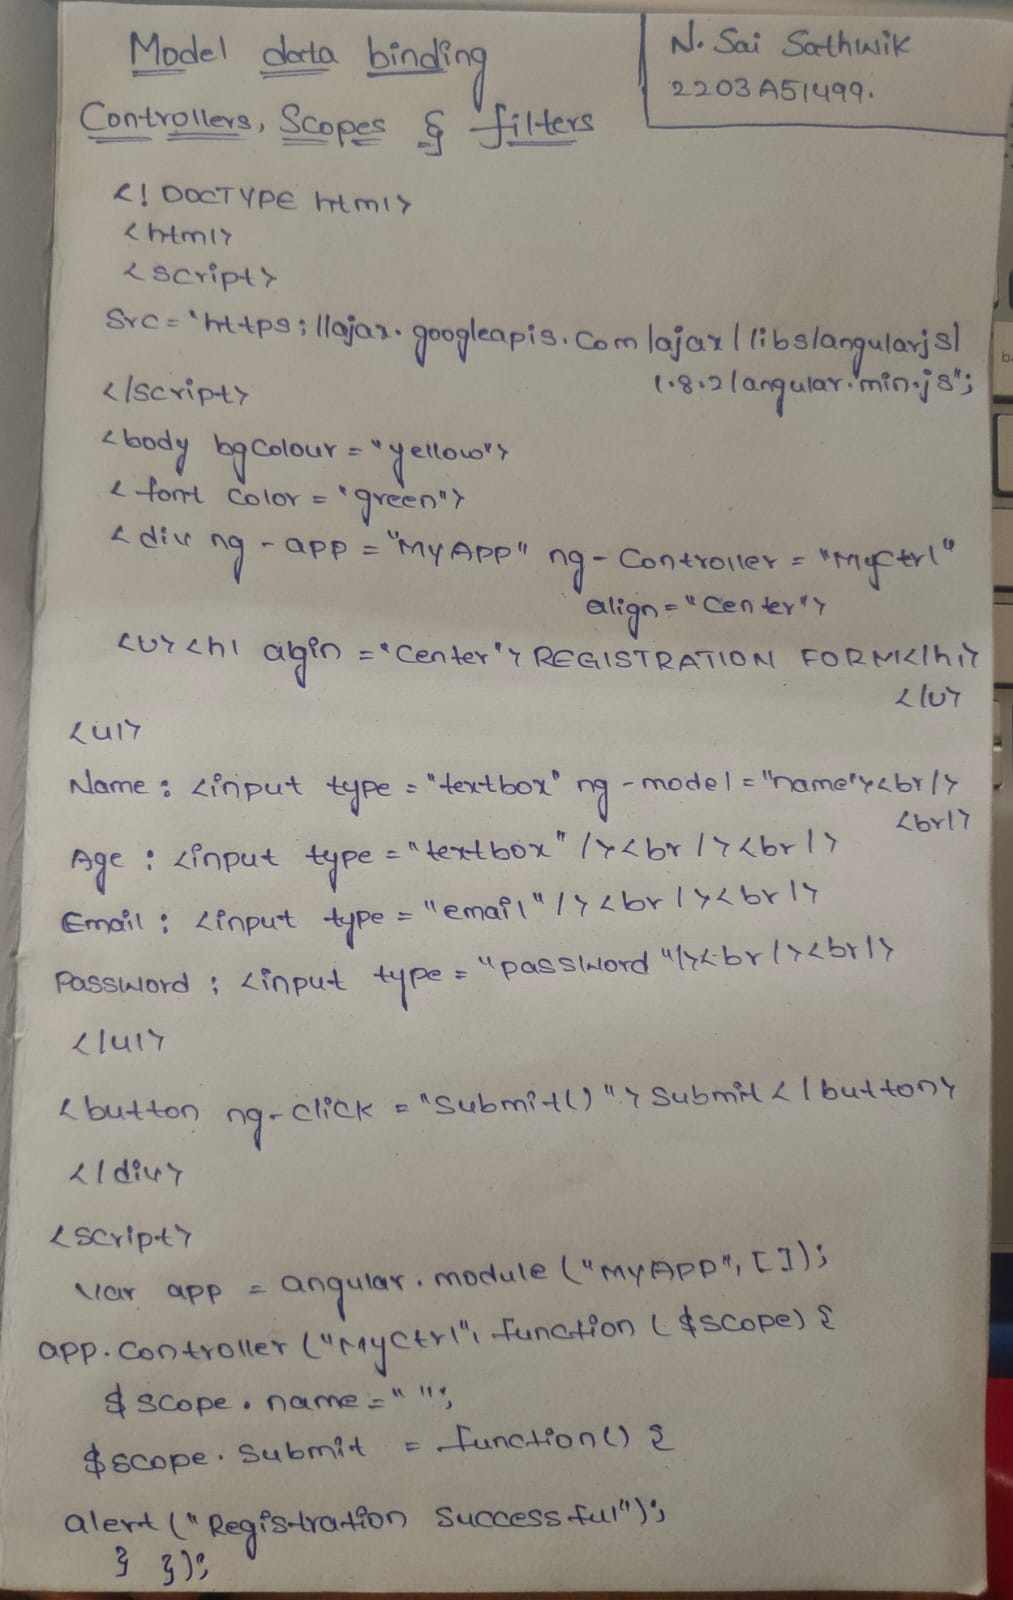 Model data binding
Controllers, Scopes & filters
N. Sai Sathwik
2203A51499.
<!DOCTYPE html>
<html>
<script>
Src="https://ajax.googleapis.com/ajax/libs/angularjs/
1.8.2/angular.min.js";
</script>
<body bgcolour="yellow">
<font color="green">
<div ng-app="MyApp" ng-Controller="MyCtrl"
align="Center">
<u><h1 align="Center">REGISTRATION FORM</h1>
</u>
<ul>
Name: <input type="textbox" ng-model="name"><br/>
<br/>
Age: <input type="textbox"/><br/><br/>
Email: <input type="email"/><br/><br/>
Password: <input type="password"/><br/><br/>
</ul>
<button ng-click="Submit()">Submit</button>
</div>
<script>
Var app = angular.module("MyApp", []);
app.Controller("MyCtrl", function($scope) {
$scope.name="";
$scope.submit = function() {
alert("Registration Successful");
} });